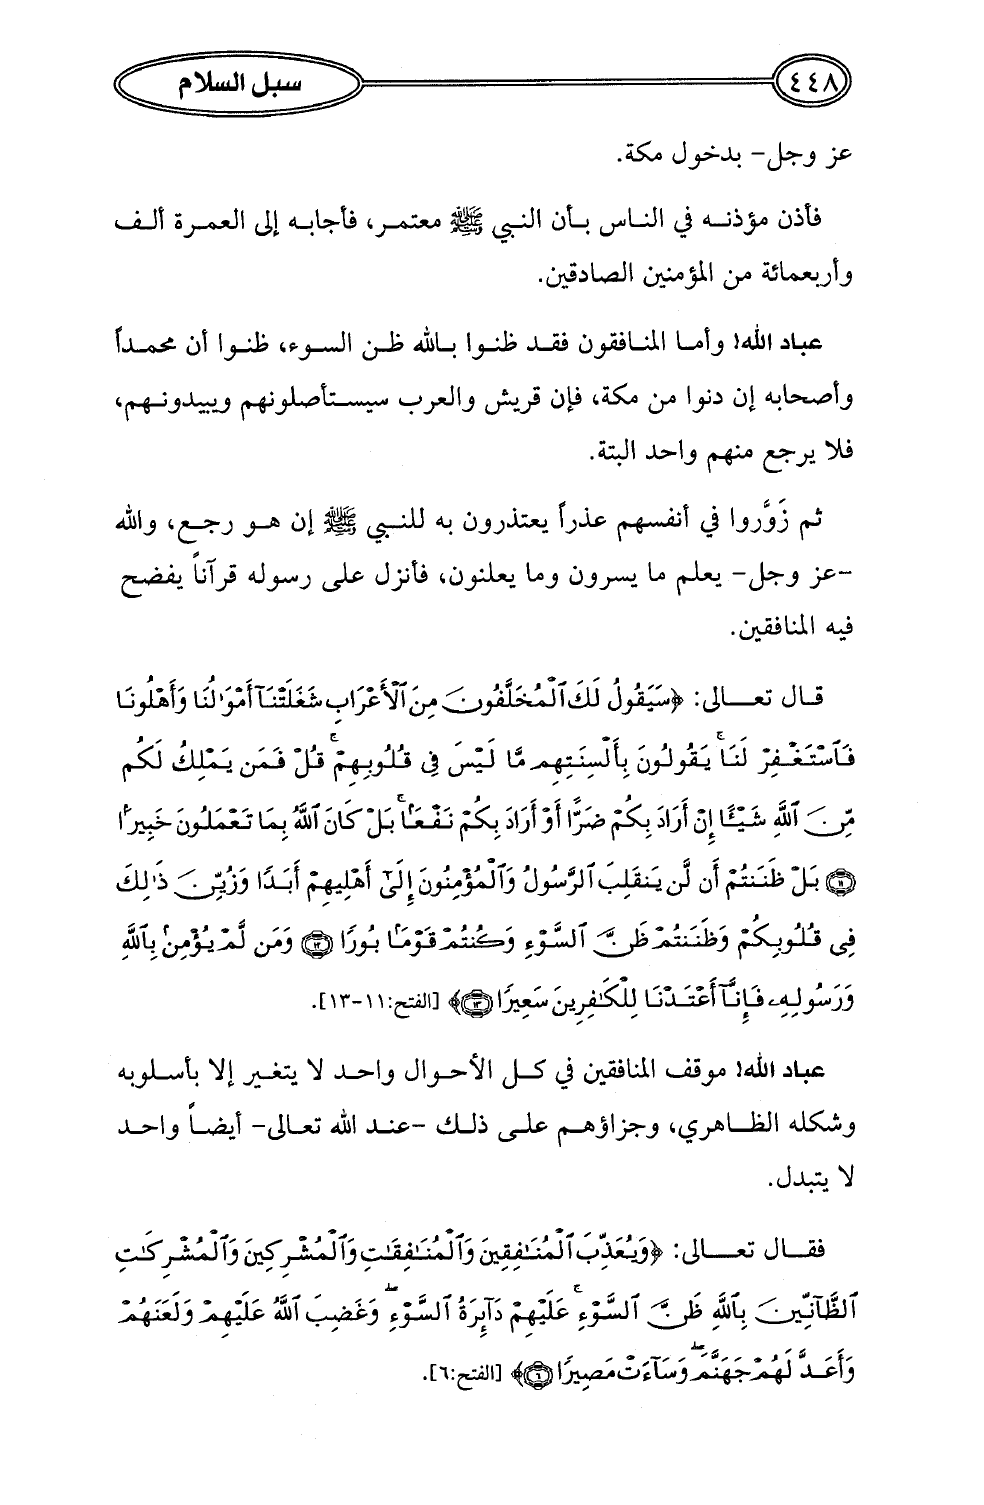 ٤٤٨
سبل السلام
عز وجل- بدخول مكة.
فأذن مؤذنه في الناس بأن النبي ﷺ معتمر، فأجابه إلى العمرة ألف
وأربعمائة من المؤمنين الصادقين.
عباد الله! وأما المنافقون فقد ظنوا بالله ظن السوء، ظنوا أن محمداً
وأصحابه إن دنوا من مكة، فإن قريش والعرب سيستأصلونهم ويبيدونهم،
فلا يرجع منهم واحد البتة.
ثم زَوَّروا في أنفسهم عذراً يعتذرون به للنبي ﷺ إن هو رجع، والله
-عز وجل- يعلم ما يسرون وما يعلنون، فأنزل على رسوله قرآناً يفضح
فيه المنافقين.
قال تعالى: ﴿سَيَقُولُ لَكَ ٱلْمُخَلَّفُونَ مِنَ ٱلْأَعْرَابِ شَغَلَتْنَآ أَمْوَٰلُنَا وَأَهْلُونَا
فَٱسْتَغْفِرْ لَنَا ۚ يَقُولُونَ بِأَلْسِنَتِهِم مَّا لَيْسَ فِى قُلُوبِهِمْ ۚ قُلْ فَمَن يَمْلِكُ لَكُم
مِّنَ ٱللَّهِ شَيْـًٔا إِنْ أَرَادَ بِكُمْ ضَرًّا أَوْ أَرَادَ بِكُمْ نَفْعًۢا ۚ بَلْ كَانَ ٱللَّهُ بِمَا تَعْمَلُونَ خَبِيرًۢا
﴿١١﴾ بَلْ ظَنَنتُمْ أَن لَّن يَنقَلِبَ ٱلرَّسُولُ وَٱلْمُؤْمِنُونَ إِلَىٰٓ أَهْلِيهِمْ أَبَدًا وَزُيِّنَ ذَٰلِكَ
فِى قُلُوبِكُمْ وَظَنَنتُمْ ظَنَّ ٱلسَّوْءِ وَكُنتُمْ قَوْمًۢا بُورًا ﴿١٢﴾ وَمَن لَّمْ يُؤْمِنۢ بِٱللَّهِ
وَرَسُولِهِۦ فَإِنَّآ أَعْتَدْنَا لِلْكَٰفِرِينَ سَعِيرًا ﴿١٣﴾﴾ [الفتح:١١-١٣].
عباد الله! موقف المنافقين في كل الأحوال واحد لا يتغير إلا بأسلوبه
وشكله الظاهري، وجزاؤهم على ذلك -عند الله تعالى- أيضاً واحد
لا يتبدل.
فقال تعالى: ﴿وَيُعَذِّبَ ٱلْمُنَٰفِقِينَ وَٱلْمُنَٰفِقَٰتِ وَٱلْمُشْرِكِينَ وَٱلْمُشْرِكَٰتِ
ٱلظَّآنِّينَ بِٱللَّهِ ظَنَّ ٱلسَّوْءِ ۚ عَلَيْهِمْ دَآئِرَةُ ٱلسَّوْءِ ۖ وَغَضِبَ ٱللَّهُ عَلَيْهِمْ وَلَعَنَهُمْ
وَأَعَدَّ لَهُمْ جَهَنَّمَ ۖ وَسَآءَتْ مَصِيرًا ﴿٦﴾﴾ [الفتح:٦].